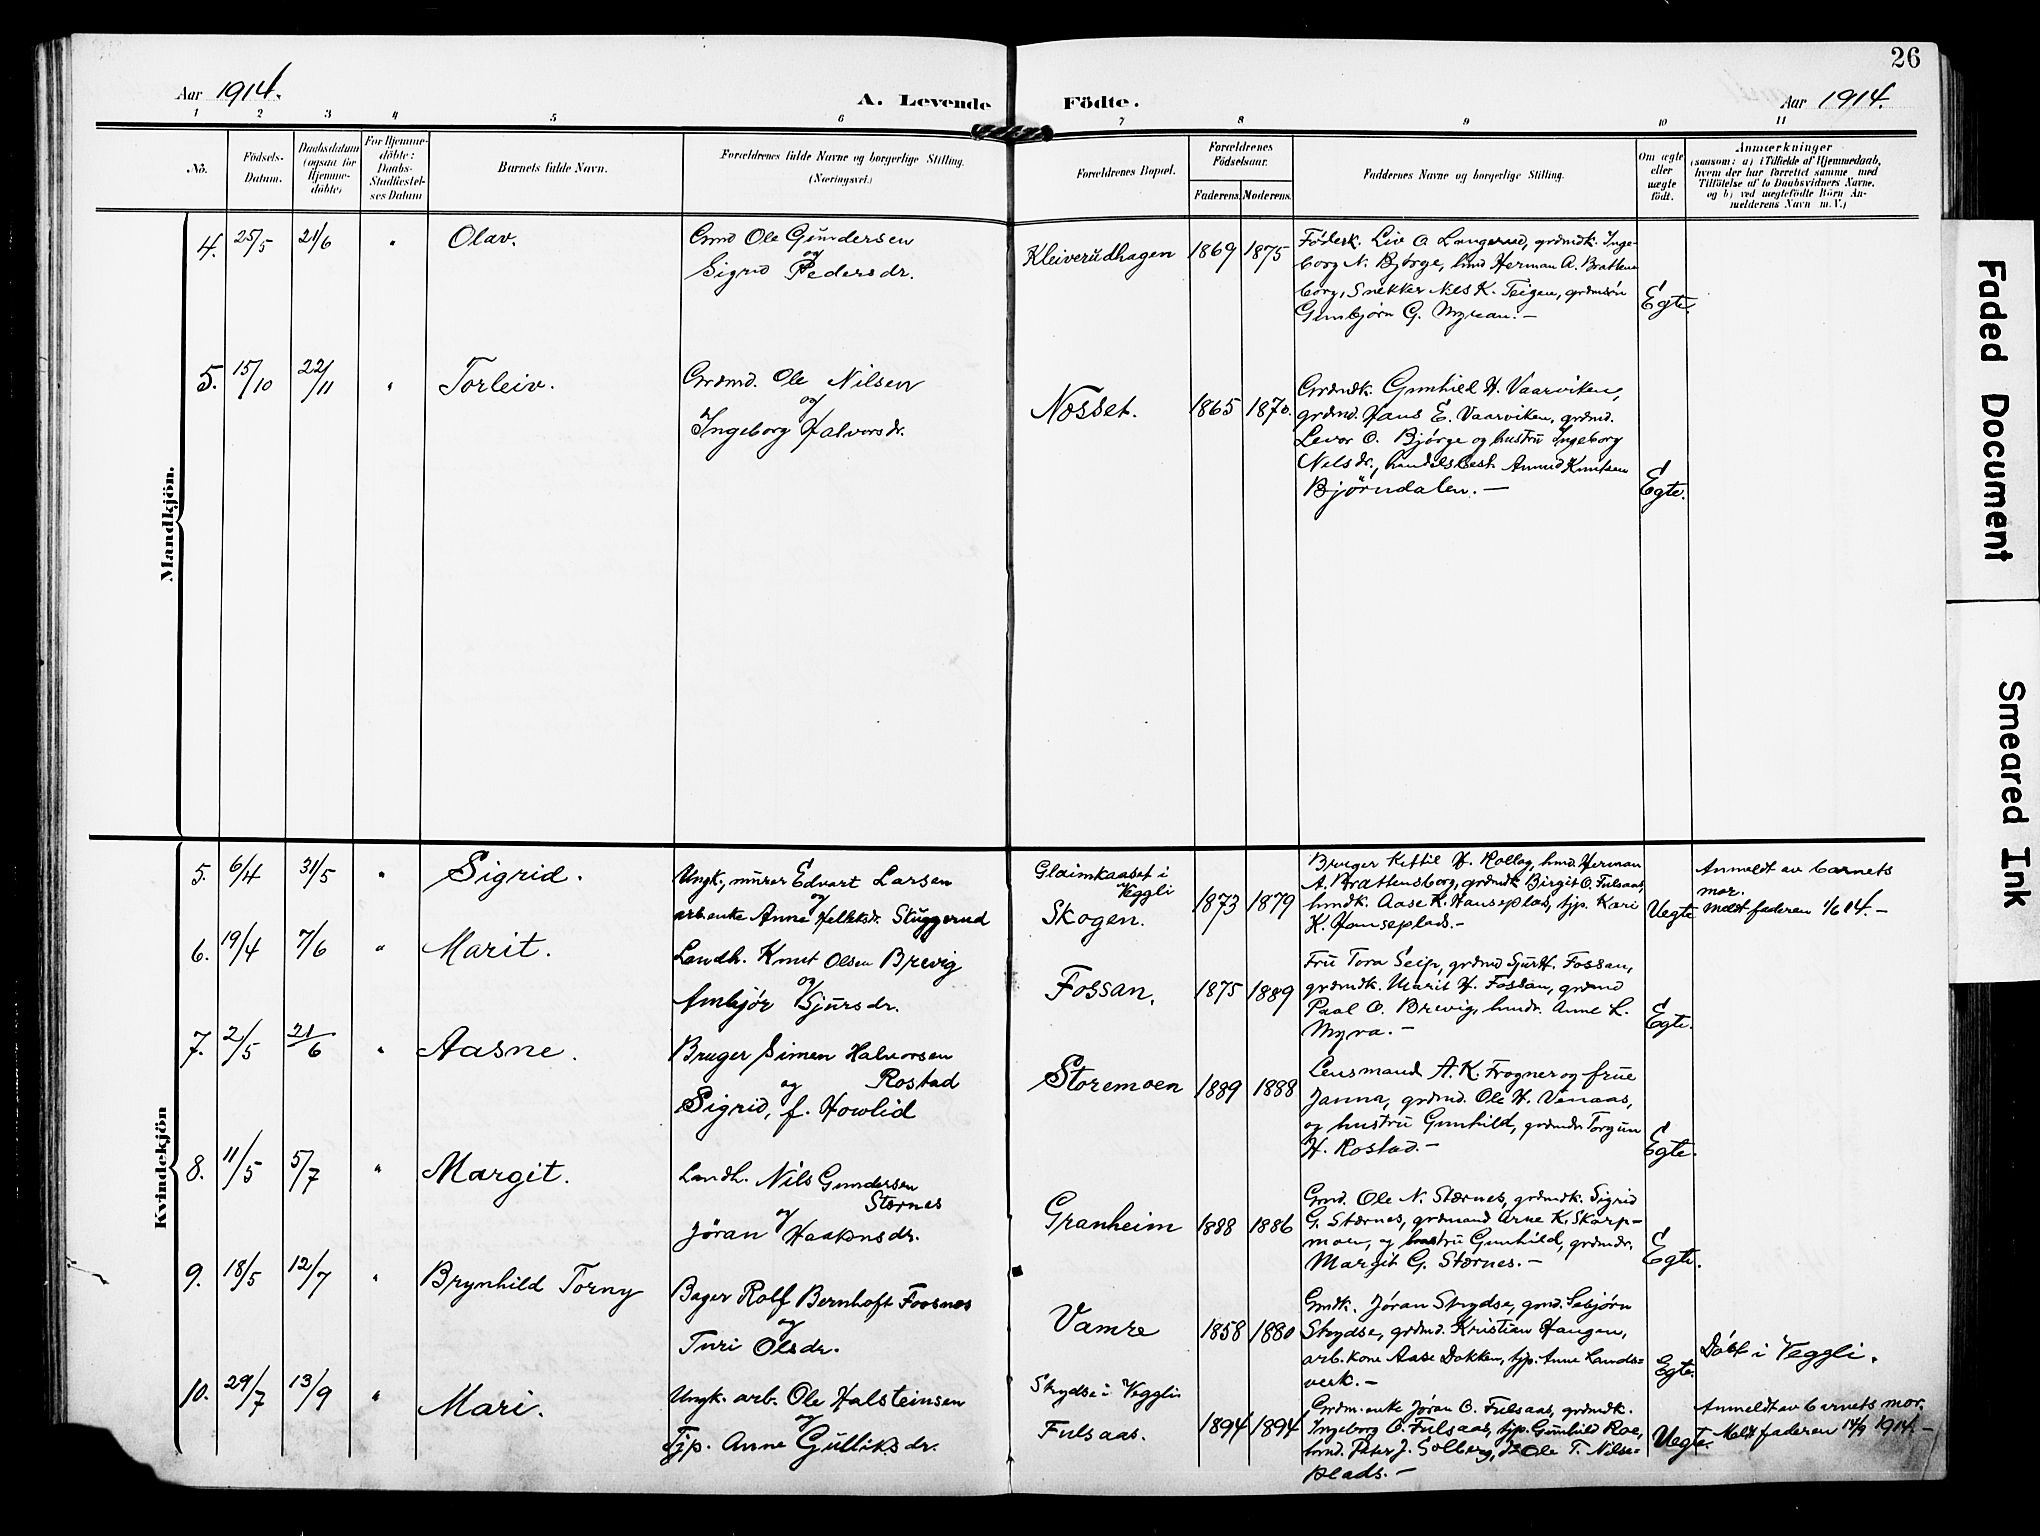 26
Aar 1914.
A. Levende Födte.
Aar 1914.
1 2 3 4 5 6 7 8 9 10 11
No.
Födsels-
Datum.
Daabsdatum
(ogsaa for
Hjemme-
döbte)
For Hjemme-
döbte:
Daabs-
Stadfæstel-
ses Datum
Barnets fulde Navn.
Forældrenes fulde Navne og borgerlige Stilling.
(Næringsvei.)
Forældrenes Bopæl.
Forældrenes
Födselsaar.
Faderens. Moderens.
Faddernes Navne og borgerlige Stilling.
Om ægte
eller
uægte
födt.
Anmærkninger
(saasom: a) i Tilfælde af Hjemmedaab,
hvem der har forrettet samme med
Tilföielse af to Daabsvidners Navne,
og b) ved uægtefödte Börn An-
melderens Navn m. V.)
Mandkjön.
4. 25/5 21/6 " Olav.
Gmd Ole Gundersen
og
Sigrid Pedersdr.
Kleiverudhagen 1869 1875
Föderk. Liv O Langerud, grdmdk. Inge-
borg N. Bjørge, hmd Herman A. Brattens-
borg, Snekker Nels K. Teigen, grdmsön
Gunbjørn G. Myran. -
Egte.
5. 15/10 22/11 " Torleiv.
Grdmd. Ole Nilsen
og
Ingeborg Halvorsdr.
Nosset. 1865 1870.
Grdmdk. Gunhild H. Vaarviken,
grdmd. Hans E. Vaarviken, grdmd.
Levor O. Bjørge og hustru Ingeborg
Nilsdr., handelsbest. Amund Knutsen
Bjørndalen. -
Egte.
Kvindekjön
5. 6/4 31/5 " Sigrid.
Ungk., murer Edvart Larsen
og
arb.enke Anne Helleksdr. Skuggerud
Glaimkaaset i
Veggli
Skogen.
1873 1879
Bruger Kittil H. Rollag, hmd. Herman
A. Brattensborg, grdmdk Birgit O. Fulsaas,
hmdk. Aase K. Hanseplas, tjp. Kari
K. Hanseplads. -
Uegte
Anmeldt av barnets
mor.
Meldt faderen 1/6 14. -
6. 19/4 7/6 " Marit.
Landh. Knut Olsen Brevig
og
Ambjør Sjursdr.
Fossan. 1875 1889
Fru Tora Seip, grdmd Sjur H. Fossan,
grdmdk. Marit H. Fossan, grdmd
Paal O. Brevig, hmdr. Anne L.
Myra. -
Egte.
7. 2/5 21/6 " Aasne.
Bruger Simen Halvorsen
Rostad
og
Sigrid, f. Howlid
Storemoen 1889 1888
Lensmand A. K. Frogner og frue
Janna, grdmd. Ole H. Venaas,
og hustru Gunhild, grdmdr Torgun
H. Rostad. -
Egte.
8. 11/5 5/7 " Margit.
Landh. Nils Gundersen
Stærnes
og
Jøran Haakonsdr.
Granheim 1888 1886
Gmd. Ole N. Stærnes, grdmdk. Sigrid
G. Stærnes, grdmand Arne K. Skarp-
moen, og hustru Gunhild, grdmdr.
Margit G. Stærnes. -
Egte.
9. 18/5 12/7 " Brynhild Torny
Bager Rolf Bernhoft Foosnæs
og
Turi Olsdr.
Vamre 1858 1880
Gmdk. Jøran Strydse, gmd. Sebjørn
Strydse, grdmd. Kristian Haugen,
arb. kone Aase Dokken, tjp. Anne Lands-
verk. -
Egte.
Döbt i Veggli.
10. 29/7 13/9 " Mari.
Ungk. arb. Ole Halsteinsen
og
Tjp. Anne Gulliksdr.
Strydse i Veggli
Fulsaas.
1894 1894
Grdm.enke Jøran O. Fulsaas, grdmdk.
Ingeborg O. Fulsaas, tjp. Gunhild Roe,
hmd. Peter J. Solberg, Ole T. Nilse-
plads. -
Uegte.
Anmeldt av barnets mor.
Meldt faderen 14/9 1914. -
Faded Document
Smeared Ink